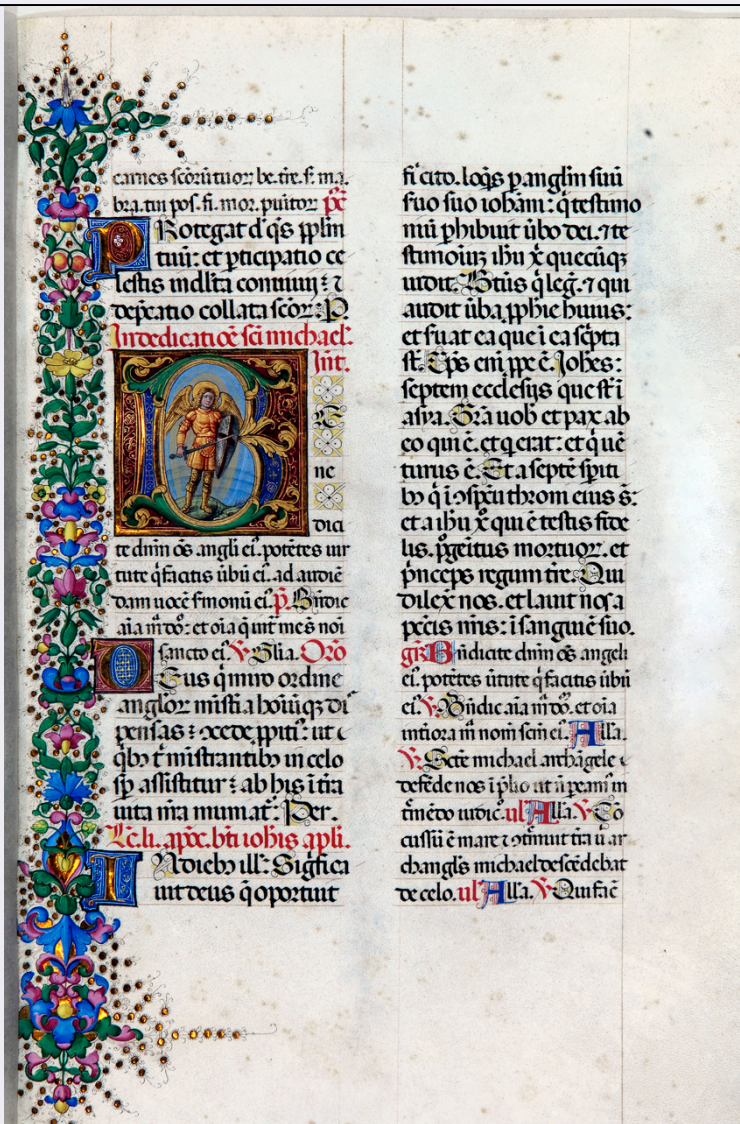 carnes scõrũ tuoꝝ be. tre. s. ma.
bra. tui pos. fi. mor. puitor pc̃
Rotegat d' q̃s pplm
tuũ: et pticipatio ce
lestis indlta continui: ⁊
dep̃catio collata scõꝝ: P
In dedicatiõe sci michael.
Int.
BE
ne
dici
te dnm õs angli ei. potẽtes uir
tute q̃ facitis ũbũ ei. ad audiẽ
dam uocẽ smonũ ei. p̃. Bñdic
aĩa m̃ dõ: et oĩa q̃ uit me s̃ noi
sancto ei. ℣ Glia. Orõ
DEus q̃ miro ordine
angloꝝ misti a hoiũq̃ di
pensas: ↄcede ppiti: ut a
qbꝫ t̃ mistrantibꝫ in celo
sp̃ assistitur: ab his ĩ tra
uita nr̃a muniat̃: Per.
Lc̃. li. apõc. bt̃i ioħis apli.
IN diebꝫ ill': Sigfica
uit deus q̃ oportuit
fi cito. loq̃s p anglm suũ
suo suo ioħani: q̃ testimo
niũ phibuit ũbo dei. ⁊ te
stimoniũ iħu x̃ quecũq̃
uidit. Btũs q̃ leg̃. ⁊ qui
audit ũba ppħie huius:
et suat ea que ĩ ea scpta
st̃. Tp̃s eni ppe ẽ. Ioħes:
septem ecclesijs que st̃ ĩ
asya. Gr̃a uob et pax ab
eo qui ẽ. et q̃ erat: et q̃ uẽ
turus ẽ. Et a septẽ spiti
bꝫ q̃ ĩ ↄspcũ throni eius s̃:
et a iħu x̃ qui ẽ testis fide
lis. pg̃eitus mortuoꝝ. et
p̃nceps regum tre. Qui
dilex nos. et lauit nos a
pc̃cis nr̃is: ĩ sanguiẽ suo.
gr̃. Bñdicite dnm õs angeli
ei. potẽtes ũtute q̃ facitis ũbũ
ei. ℣ Bñdic aĩa m̃ dõ. et oĩa
intiora m̃ nom scm ei. Alla.
℣ Scte michael archãgele
defẽde nos ĩ plio ut ñ peam ĩ
t̃mẽdo iudic. ul Alla. ℣ Cõ
cussũ ẽ mare ⁊ ↄt̃muit tr̃a ũ ar
changls michael descẽdebat
de celo. ul Alla. ℣ Qui facẽ